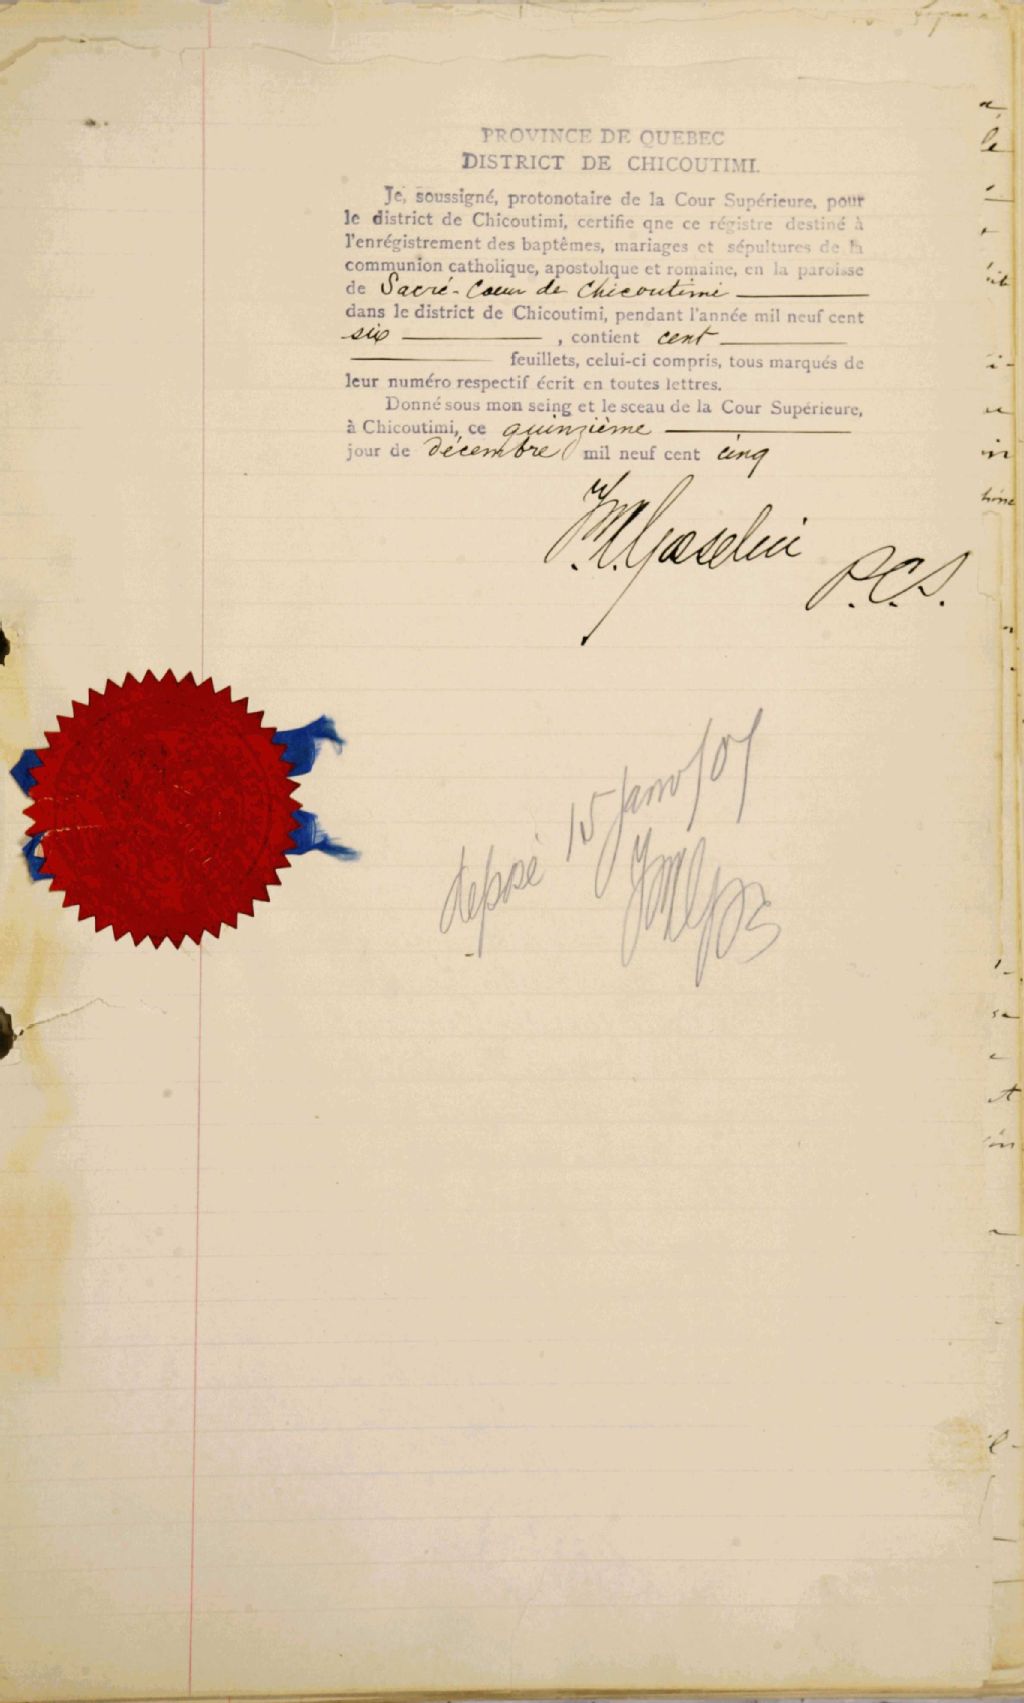 PROVINCE DE QUEBEC
DISTRICT DE CHICOUTIMI.
Je, soussigné, protonotaire de la Cour Supérieure, pour
le district de Chicoutimi, certifie qne ce régistre destiné à
l'enrégistrement des baptêmes, mariages et sépultures de la
communion catholique, apostolique et romaine, en la paroisse
de Sacré-Coeur de Chicoutimi
dans le district de Chicoutimi, pendant l'année mil neuf cent
six , contient cent
feuillets, celui-ci compris, tous marqués de
leur numéro respectif écrit en toutes lettres.
Donné sous mon seing et le sceau de la Cour Supérieure,
à Chicoutimi, ce quinzième
jour de décembre mil neuf cent cinq
Gosselin
P.C.S.
déposé 15 Janv/07